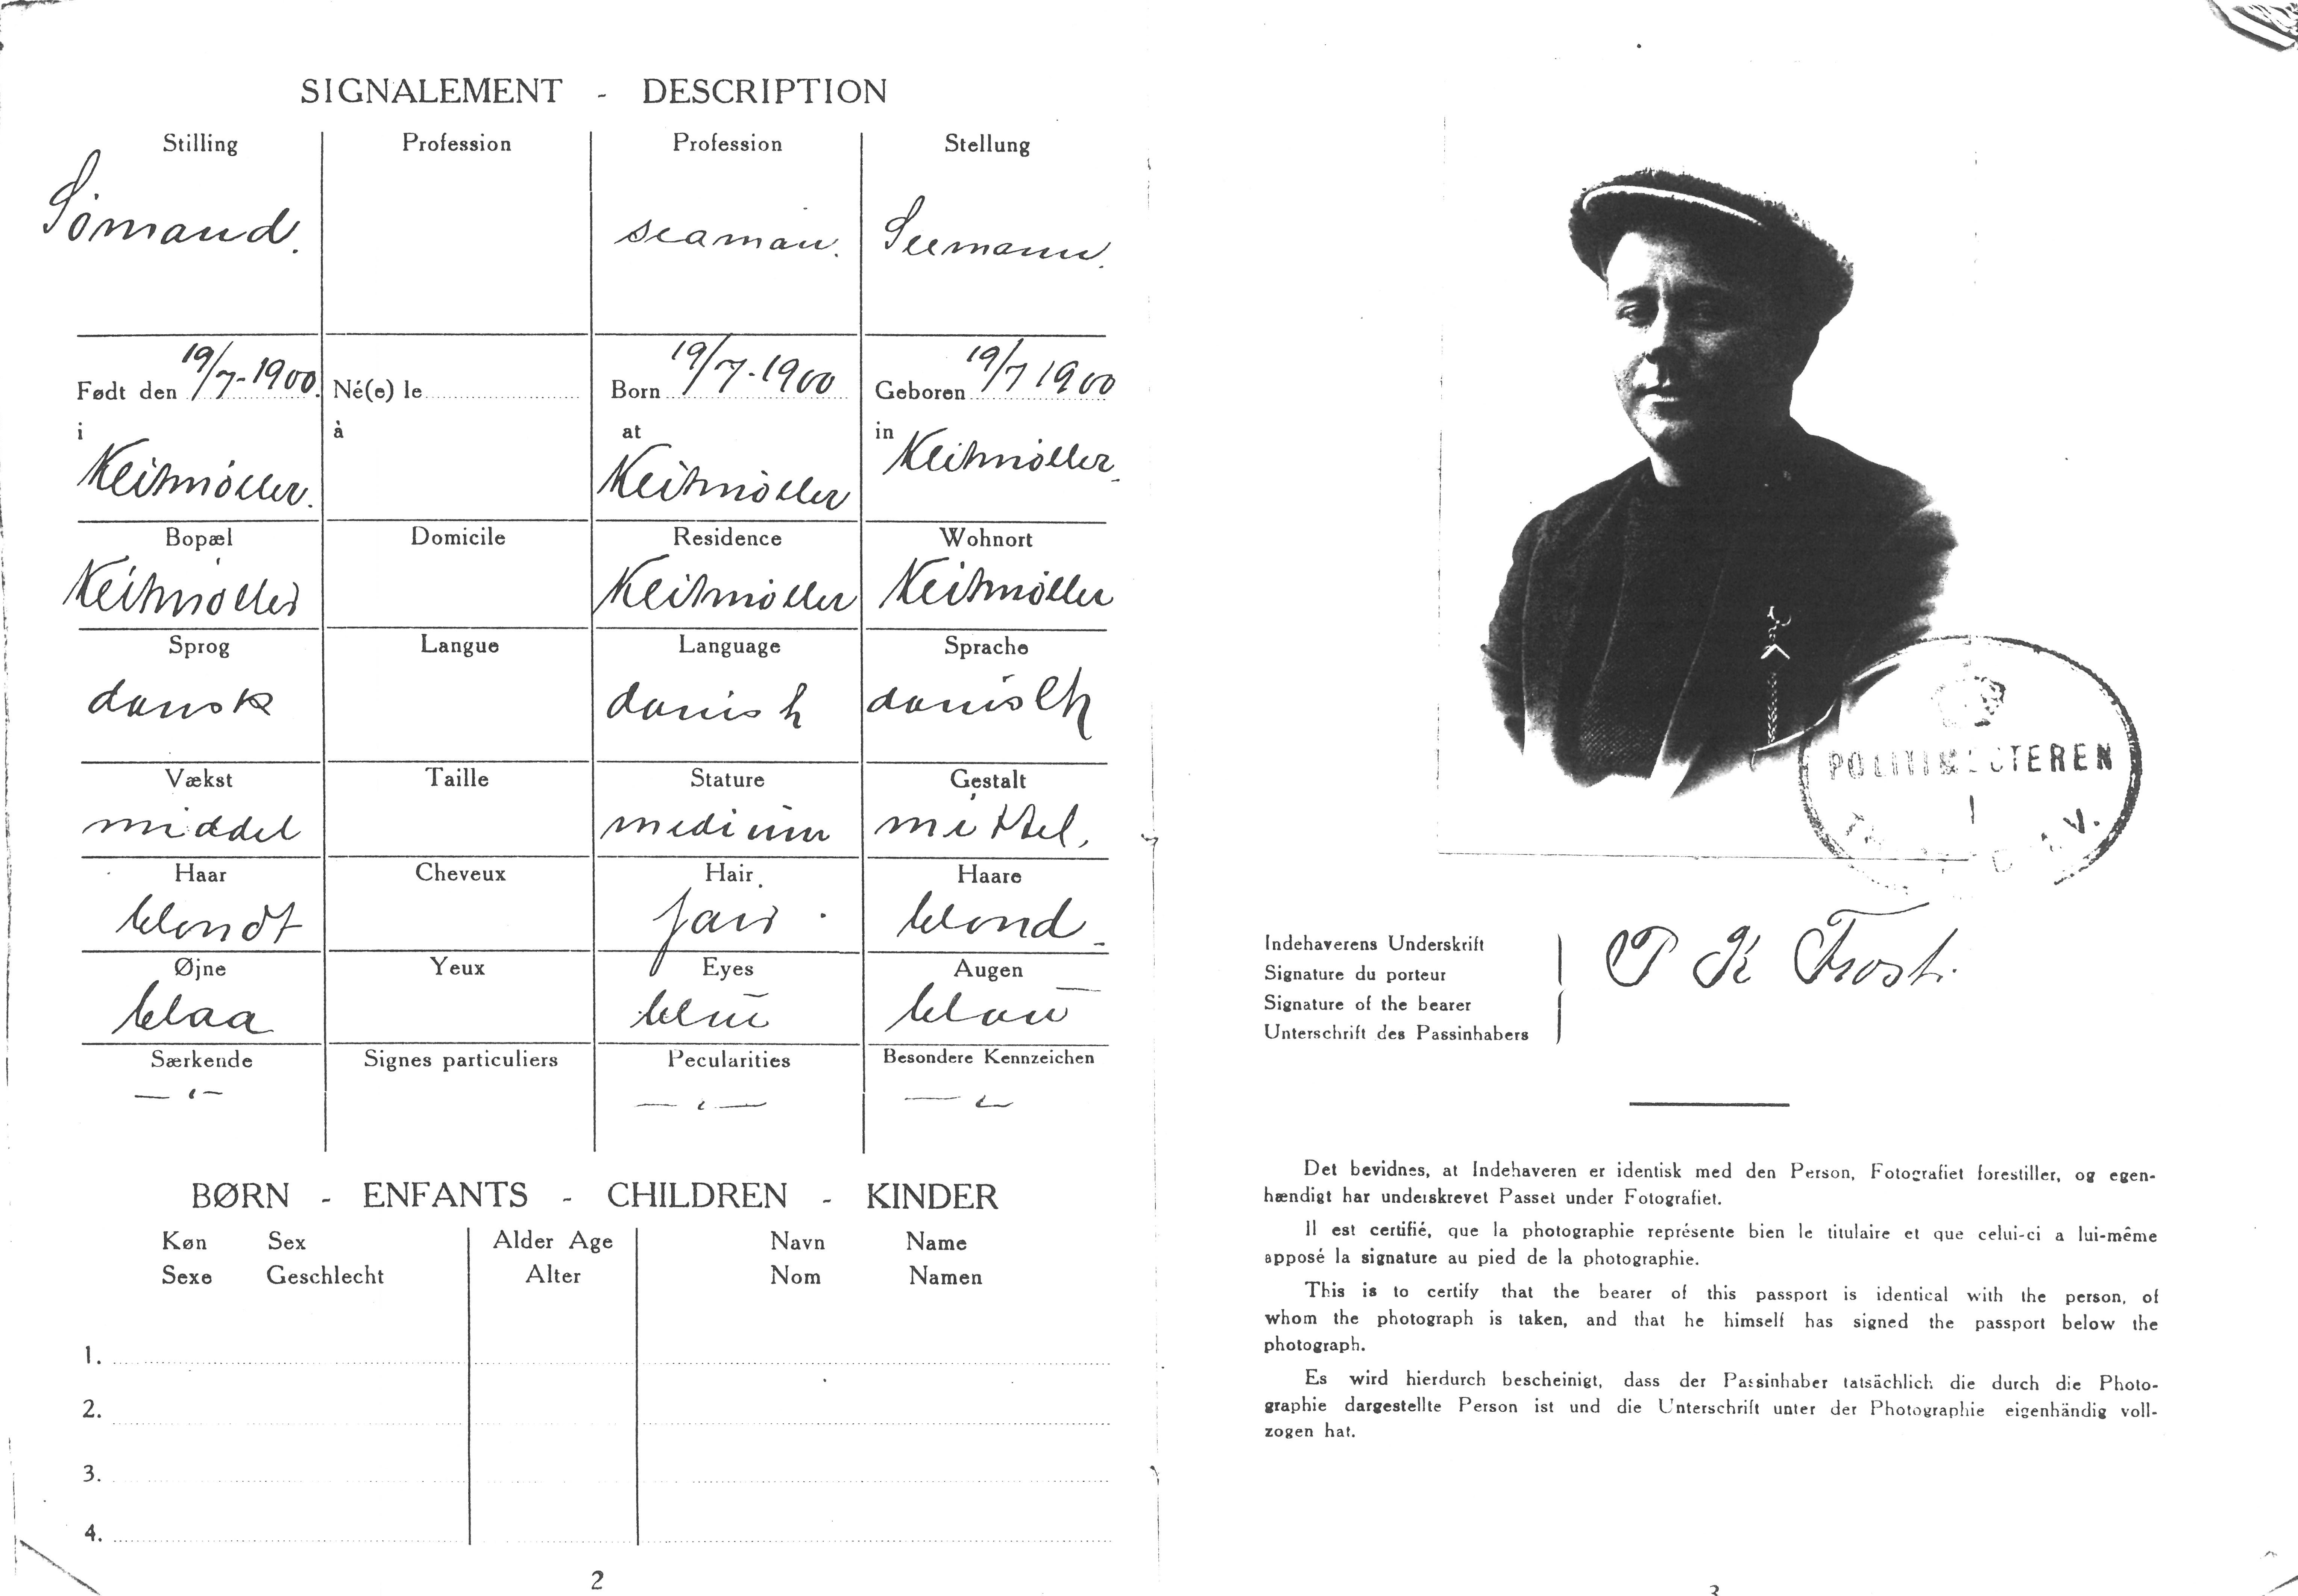 SIGNALEMENT - DESCRIPTION
Stilling Profession Profession Stellung
Sömand. seaman. Seemann.
Født den 19/7-1900. Né(e) le Born 19/7-1900 Geboren 19/7 1900
i à at in
Klitmöller. Klitmöller Klitmöller.
Bopæl Domicile Residence Wohnort
Klitmöller Klitmöller Klitmöller
Sprog Langue Language Sprache
dansk danish danisch
Vækst Taille Stature Gestalt
middel medium mittel.
Haar Cheveux Hair Haare
blondt fair blond
Øjne Yeux Eyes Augen
blaa blue blau
Særkende Signes particuliers Pecularities Besondere Kennzeichen
BØRN - ENFANTS - CHILDREN - KINDER
Køn Sex Alder Age Navn Name
Sexe Geschlecht Alter Nom Namen
1.
2.
3.
4.
2
POLITIMESTEREN
I
P K Frost.
Indehaverens Underskrift
Signature du porteur
Signature of the bearer
Unterschrift des Passinhabers
Det bevidnes, at Indehaveren er identisk med den Person, Fotografiet forestiller, og egen-
hændigt har underskrevet Passet under Fotografiet.
Il est certifié, que la photographie représente bien le titulaire et que celui-ci a lui-même
apposé la signature au pied de la photographie.
This is to certify that the bearer of this passport is identical with the person, of
whom the photograph is taken, and that he himself has signed the passport below the
photograph.
Es wird hierdurch bescheinigt, dass der Passinhaber tatsächlich die durch die Photo-
graphie dargestellte Person ist und die Unterschrift unter der Photographie eigenhändig voll-
zogen hat.
3